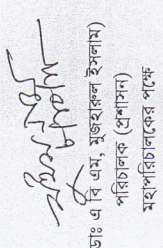 ডাঃ এ বি এম, মুজহারুল ইসলাম)
পরিচালক (প্রশাসন)
মহাপরিচালকের পক্ষে